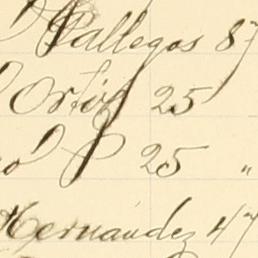 Gallegos 87
Ortiz 25
25 "
Hernandez 47